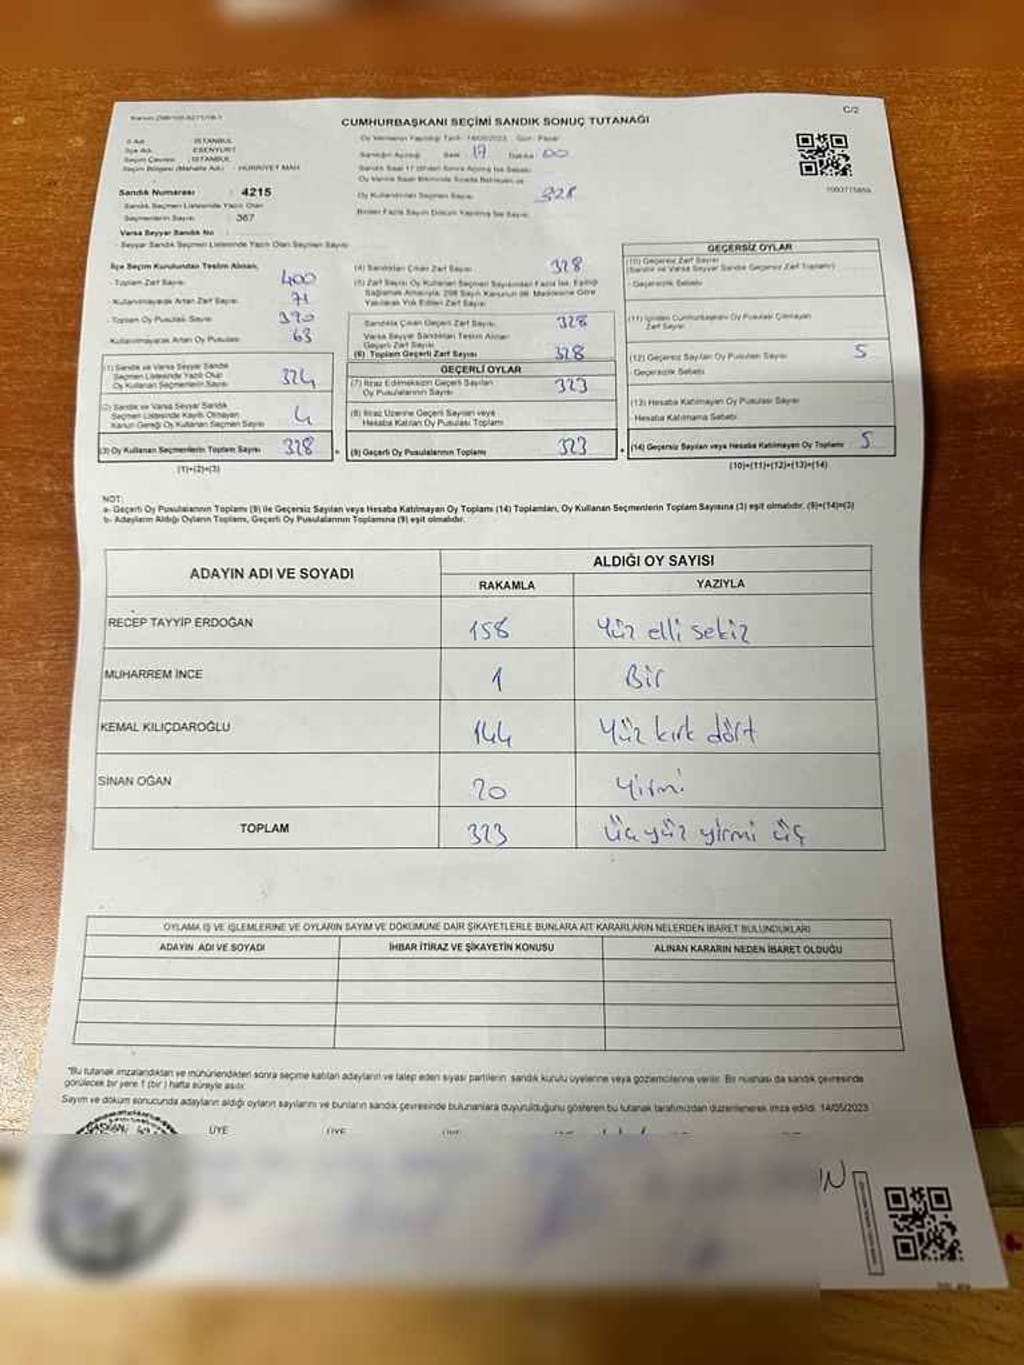 C/2
CUMHURBAŞKANI SEÇİMİ SANDIK SONUÇ TUTANAĞI
İl Adı : İSTANBUL
İlçe Adı : ESENYURT
Seçim Çevresi : İSTANBUL
Seçim Bölgesi (Mahalle Adı) : HÜRRİYET MAH
Sandık Numarası : 4215
Sandık Seçmen Listesinde Yazılı Olan
Seçmenlerin Sayısı : 367
Varsa Seyyar Sandık No :
Seyyar Sandık Seçmen Listesinde Yazılı Olan Seçmen Sayısı
Oy Vermenin Yapıldığı Tarih : 14/05/2023 Gün : Pazar
Sandığın Açıldığı Saat : 17 Dakika : 00
Oy Kullandırılan Seçmen Sayısı 328
İlçe Seçim Kurulundan Teslim Alınan;
- Toplam Zarf Sayısı 400
- Kullanılmayarak Artan Zarf Sayısı 71
- Toplam Oy Pusulası Sayısı 390
Kullanılmayarak Artan Oy Pusulası 63
(1) Sandık ve Varsa Seyyar Sandık
Seçmen Listesinde Yazılı Olup
Oy Kullanan Seçmenlerin Sayısı 324
(2) Sandık ve Varsa Seyyar Sandık
Seçmen Listesinde Kayıtlı Olmayan
Kanun Gereği Oy Kullanan Seçmen Sayısı 4
(3) Oy Kullanan Seçmenlerin Toplam Sayısı 328
(1)+(2)=(3)
(4) Sandıktan Çıkan Zarf Sayısı 328
(5) Zarf Sayısı Oy Kullanan Seçmen Sayısından Fazla İse, Eşitliği
Sağlamak Amacıyla, 298 Sayılı Kanunun 98. Maddesine Göre
Yakılarak Yok Edilen Zarf Sayısı
Sandıkta Çıkan Geçerli Zarf Sayısı 328
Varsa Seyyar Sandıktan Teslim Alınan
Geçerli Zarf Sayısı
(6) Toplam Geçerli Zarf Sayısı 328
GEÇERLİ OYLAR
(7) İtiraz Edilmeksizin Geçerli Sayılan
Oy Pusulalarının Sayısı 323
(8) İtiraz Üzerine Geçerli Sayılan veya
Hesaba Katılan Oy Pusulası Toplamı
(9) Geçerli Oy Pusulalarının Toplamı 323
GEÇERSİZ OYLAR
(10) Geçersiz Zarf Sayısı
(Sandık ve Varsa Seyyar Sandık Geçersiz Zarf Toplamı)
- Geçersizlik Sebebi
(11) İçinden Cumhurbaşkanı Oy Pusulası Çıkmayan
Zarf Sayısı
(12) Geçersiz Sayılan Oy Pusulası Sayısı 5
- Geçersizlik Sebebi
(13) Hesaba Katılmayan Oy Pusulası Sayısı
Hesaba Katılmama Sebebi
(14) Geçersiz Sayılan veya Hesaba Katılmayan Oy Toplamı 5
(10)+(11)+(12)+(13)=(14)
NOT:
a- Geçerli Oy Pusulalarının Toplamı (9) ile Geçersiz Sayılan veya Hesaba Katılmayan Oy Toplamı (14) Toplamları, Oy Kullanan Seçmenlerin Toplam Sayısına (3) eşit olmalıdır. (9)+(14)=(3)
b- Adayların Aldığı Oyların Toplamı, Geçerli Oy Pusulalarının Toplamına (9) eşit olmalıdır.
ADAYIN ADI VE SOYADI
ALDIĞI OY SAYISI
RAKAMLA YAZIYLA
RECEP TAYYİP ERDOĞAN 158 Yüz elli sekiz
MUHARREM İNCE 1 Bir
KEMAL KILIÇDAROĞLU 144 Yüz kırk dört
SİNAN OĞAN 20 Yirmi
TOPLAM 323 Üç yüz yirmi üç
OYLAMA İŞ VE İŞLEMLERİNE VE OYLARIN SAYIM VE DÖKÜMÜNE DAİR ŞİKAYETLERLE BUNLARA AİT KARARLARIN NELERDEN İBARET BULUNDUKLARI
ADAYIN ADI VE SOYADI İHBAR İTİRAZ VE ŞİKAYETİN KONUSU ALINAN KARARIN NEDEN İBARET OLDUĞU
*Bu tutanak imzalandıktan ve mühürlendikten sonra seçime katılan adayların ve talep eden siyasi partilerin sandık kurulu üyelerine veya gözlemcilerine verilir. Bir nüshası da sandık çevresinde
görülecek bir yere 1 (bir) hafta süreyle asılır.
Sayım ve döküm sonucunda adayların aldığı oyların sayılarını ve bunların sandık çevresinde bulunanlara duyurulduğunu gösteren bu tutanak tarafımızdan düzenlenerek imza edildi. 14/05/2023
ÜYE ÜYE